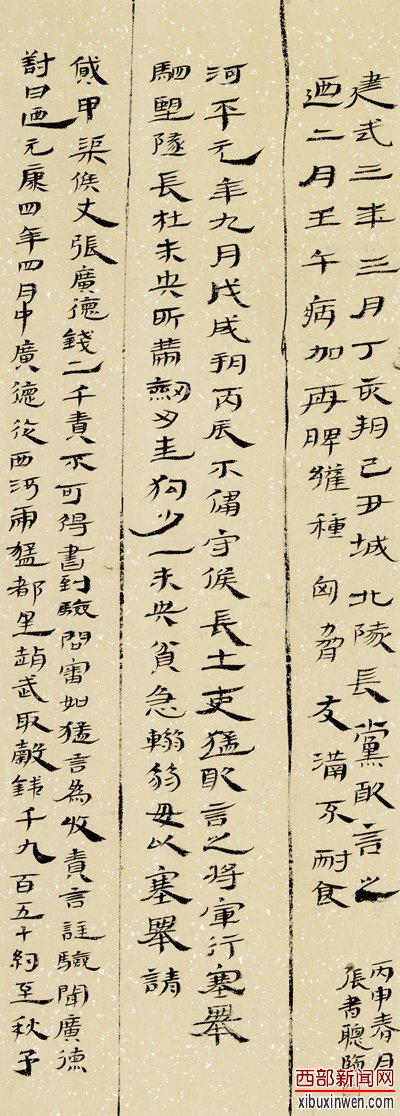 建武三年三月丁亥朔己丑城北隧長黨敢言之
迺二月壬午病加兩脾雍種匈脅支滿不耐食
河平元年九月戊戌朔丙辰不侵守候長士吏猛敢言之將軍行塞舉
駟望隧長杜未央所帶劍刃生狗少一未央貧急毋以塞舉請
貸甲渠候史張廣德錢二千責不可得書到驗問審如猛言為收責言謹驗問廣德
對曰迺元康四年四月中廣德從西河虎猛都里趙武取穀錢千九百五十約至秋予
丙申春月
張書聰臨
西部新闻网
xibuxinwen.com